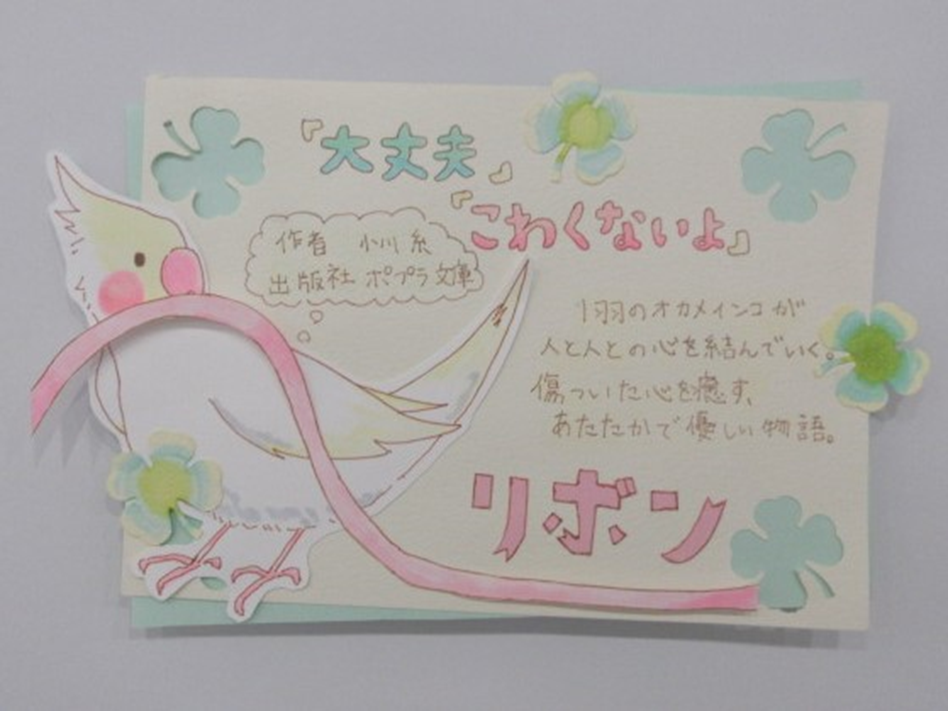 『大丈夫』
『こわくないよ』
作者 小川糸
出版社 ポプラ文庫
1羽のオカメインコが
人と人との心を結んでいく。
傷ついた心を癒す、
あたたかで優しい物語。
リボン